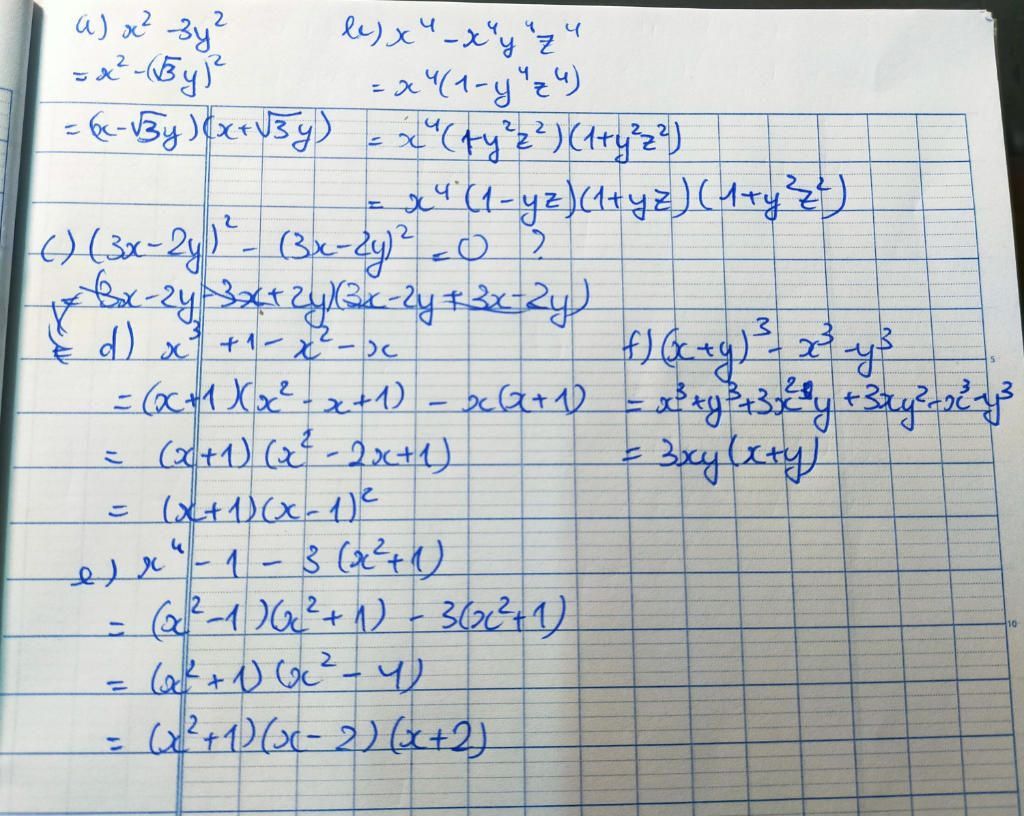 a) x² -3y²
= x² -(√3y)²
= (x-√3y)(x+√3y)
b) x⁴ - x⁴y⁴z⁴
= x⁴(1-y⁴z⁴)
= x⁴(1-y²z²)(1+y²z²)
= x⁴(1-yz)(1+yz)(1+y²z²)
c) (3x-2y)² - (3x-2y)² = 0 ?
= (3x-2y-3x+2y)(3x-2y+3x-2y)
d) x³ +1 - x² - x
= (x+1)(x² - x+1) - x(x+1)
= (x+1)(x² - 2x+1)
= (x+1)(x-1)²
e) x⁴ - 1 - 3(x²+1)
= (x²-1)(x²+1) - 3(x²+1)
= (x²+1)(x²-4)
= (x²+1)(x-2)(x+2)
f) (x+y)³ - x³ -y³
= x³+y³+3x²y+3xy²-x³-y³
= 3xy(x+y)
10